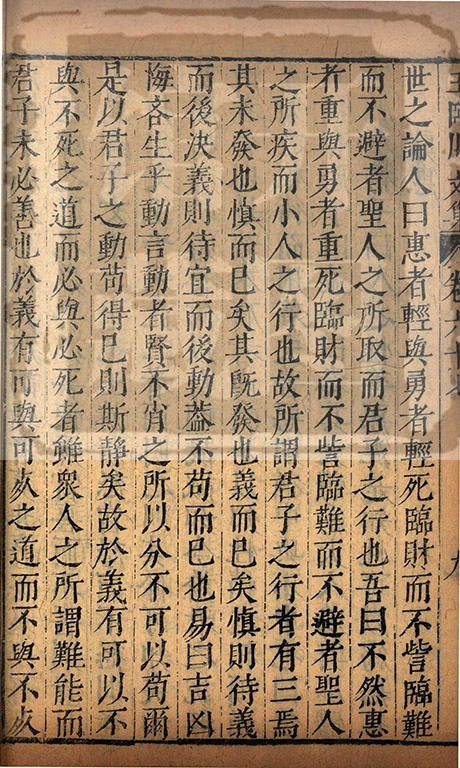 王臨川文集 卷六十七 九
世之論人曰惠者輕與勇者輕死臨財而不訾臨難
而不避者聖人之所取而君子之行也吾曰不然惠
者重與勇者重死臨財而不訾臨難而不避者聖人
之所疾而小人之行也故所謂君子之行者有三焉
其未發也慎而已矣其旣發也義而已矣慎則待義
而後决義則待宜而後動葢不苟而已也易曰吉凶
悔吝生乎動言動者賢不肖之所以分不可以苟爾
是以君子之動苟得已則斯靜矣故於義有可以不
與不死之道而必與必死者雖衆人之所謂難能而
君子未必善也於義有可與可死之道而不與不死